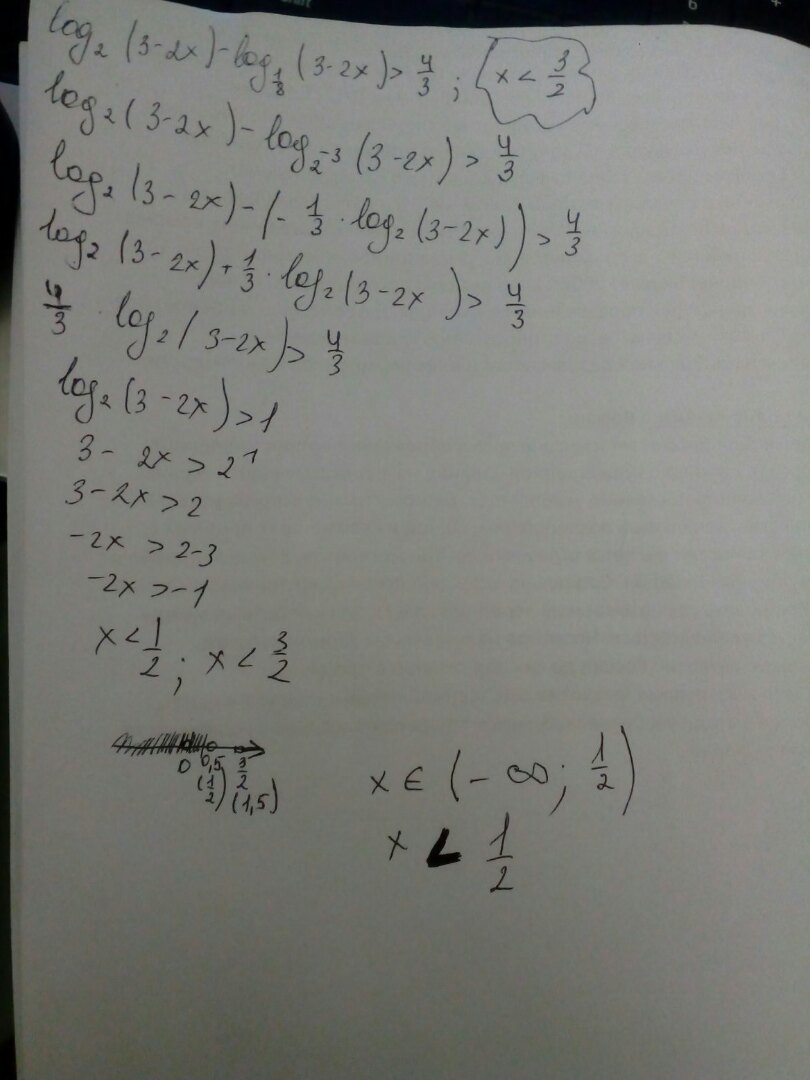 log₂ (3-2x) - log_{1/8} (3-2x) > 4/3 ; x < 3/2
log₂ (3-2x) - log_{2⁻³} (3-2x) > 4/3
log₂ (3-2x) - (- 1/3 · log₂ (3-2x)) > 4/3
log₂ (3-2x) + 1/3 · log₂ (3-2x) > 4/3
4/3 · log₂ (3-2x) > 4/3
log₂ (3-2x) > 1
3- 2x > 2¹
3-2x > 2
-2x > 2-3
-2x > -1
x < 1/2 ; x < 3/2
0 0,5 3/2
(1/2) (1,5)
x ∈ (-∞; 1/2)
x < 1/2